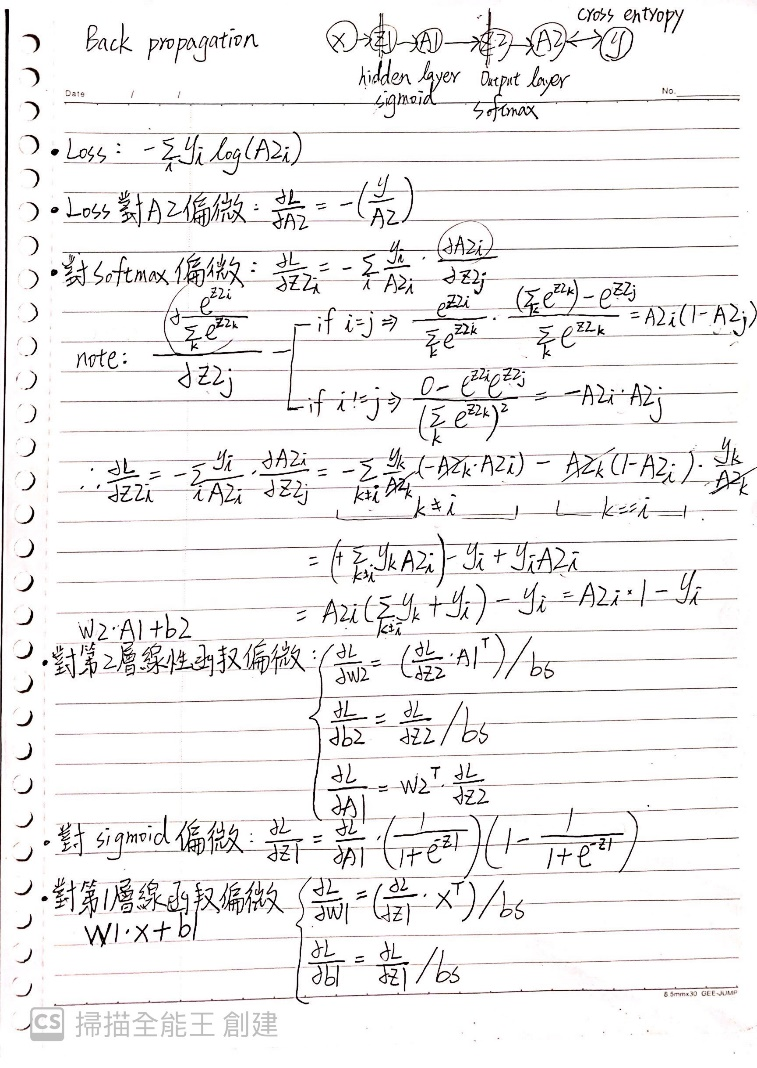 Back propagation
X → Z1 → A1 → Z2 → A2 ↔ y
cross entropy
hidden layer sigmoid
Output layer softmax
Date / /
No.
• Loss : -Σ_i yi log(A2i)
• Loss 對 A2 偏微 : ∂L/∂A2 = -(y/A2)
• 對 softmax 偏微 : ∂L/∂Z2i = -Σ_i yi/A2i · ∂A2i/∂Z2j
note: ∂(e^Z2i / Σ_k e^Z2k) / ∂Z2j
if i=j ⇒ e^Z2i / Σ_k e^Z2k · ((Σ_k e^Z2k) - e^Z2j) / Σ_k e^Z2k = A2i(1-A2j)
if i!=j ⇒ (0 - e^Z2i e^Z2j) / (Σ_k e^Z2k)^2 = -A2i·A2j
∴ ∂L/∂Z2i = -Σ_i yi/A2i · ∂A2i/∂Z2j = -Σ_k≠i yk/A2k (-A2k·A2i) - A2k(1-A2i)· yk/A2k
k≠i k==i
= (+Σ_k≠i yk A2i) - yi + yi A2i
= A2i(Σ_k≠i yk + yi) - yi = A2i·1 - yi
W2·A1+b2
• 對第2層線性函数偏微 : ∂L/∂W2 = (∂L/∂Z2 · A1^T)/bs
∂L/∂b2 = ∂L/∂Z2 /bs
∂L/∂A1 = W2^T · ∂L/∂Z2
• 對 sigmoid 偏微 : ∂L/∂Z1 = ∂L/∂A1 · (1/(1+e^-Z1))(1 - 1/(1+e^-Z1))
• 對第1層線函数偏微 ∂L/∂W1 = (∂L/∂Z1 · X^T)/bs
W1·x+b1
∂L/∂b1 = ∂L/∂Z1 /bs
8.5mmx30 GEE-JUMP
CS 掃描全能王 創建